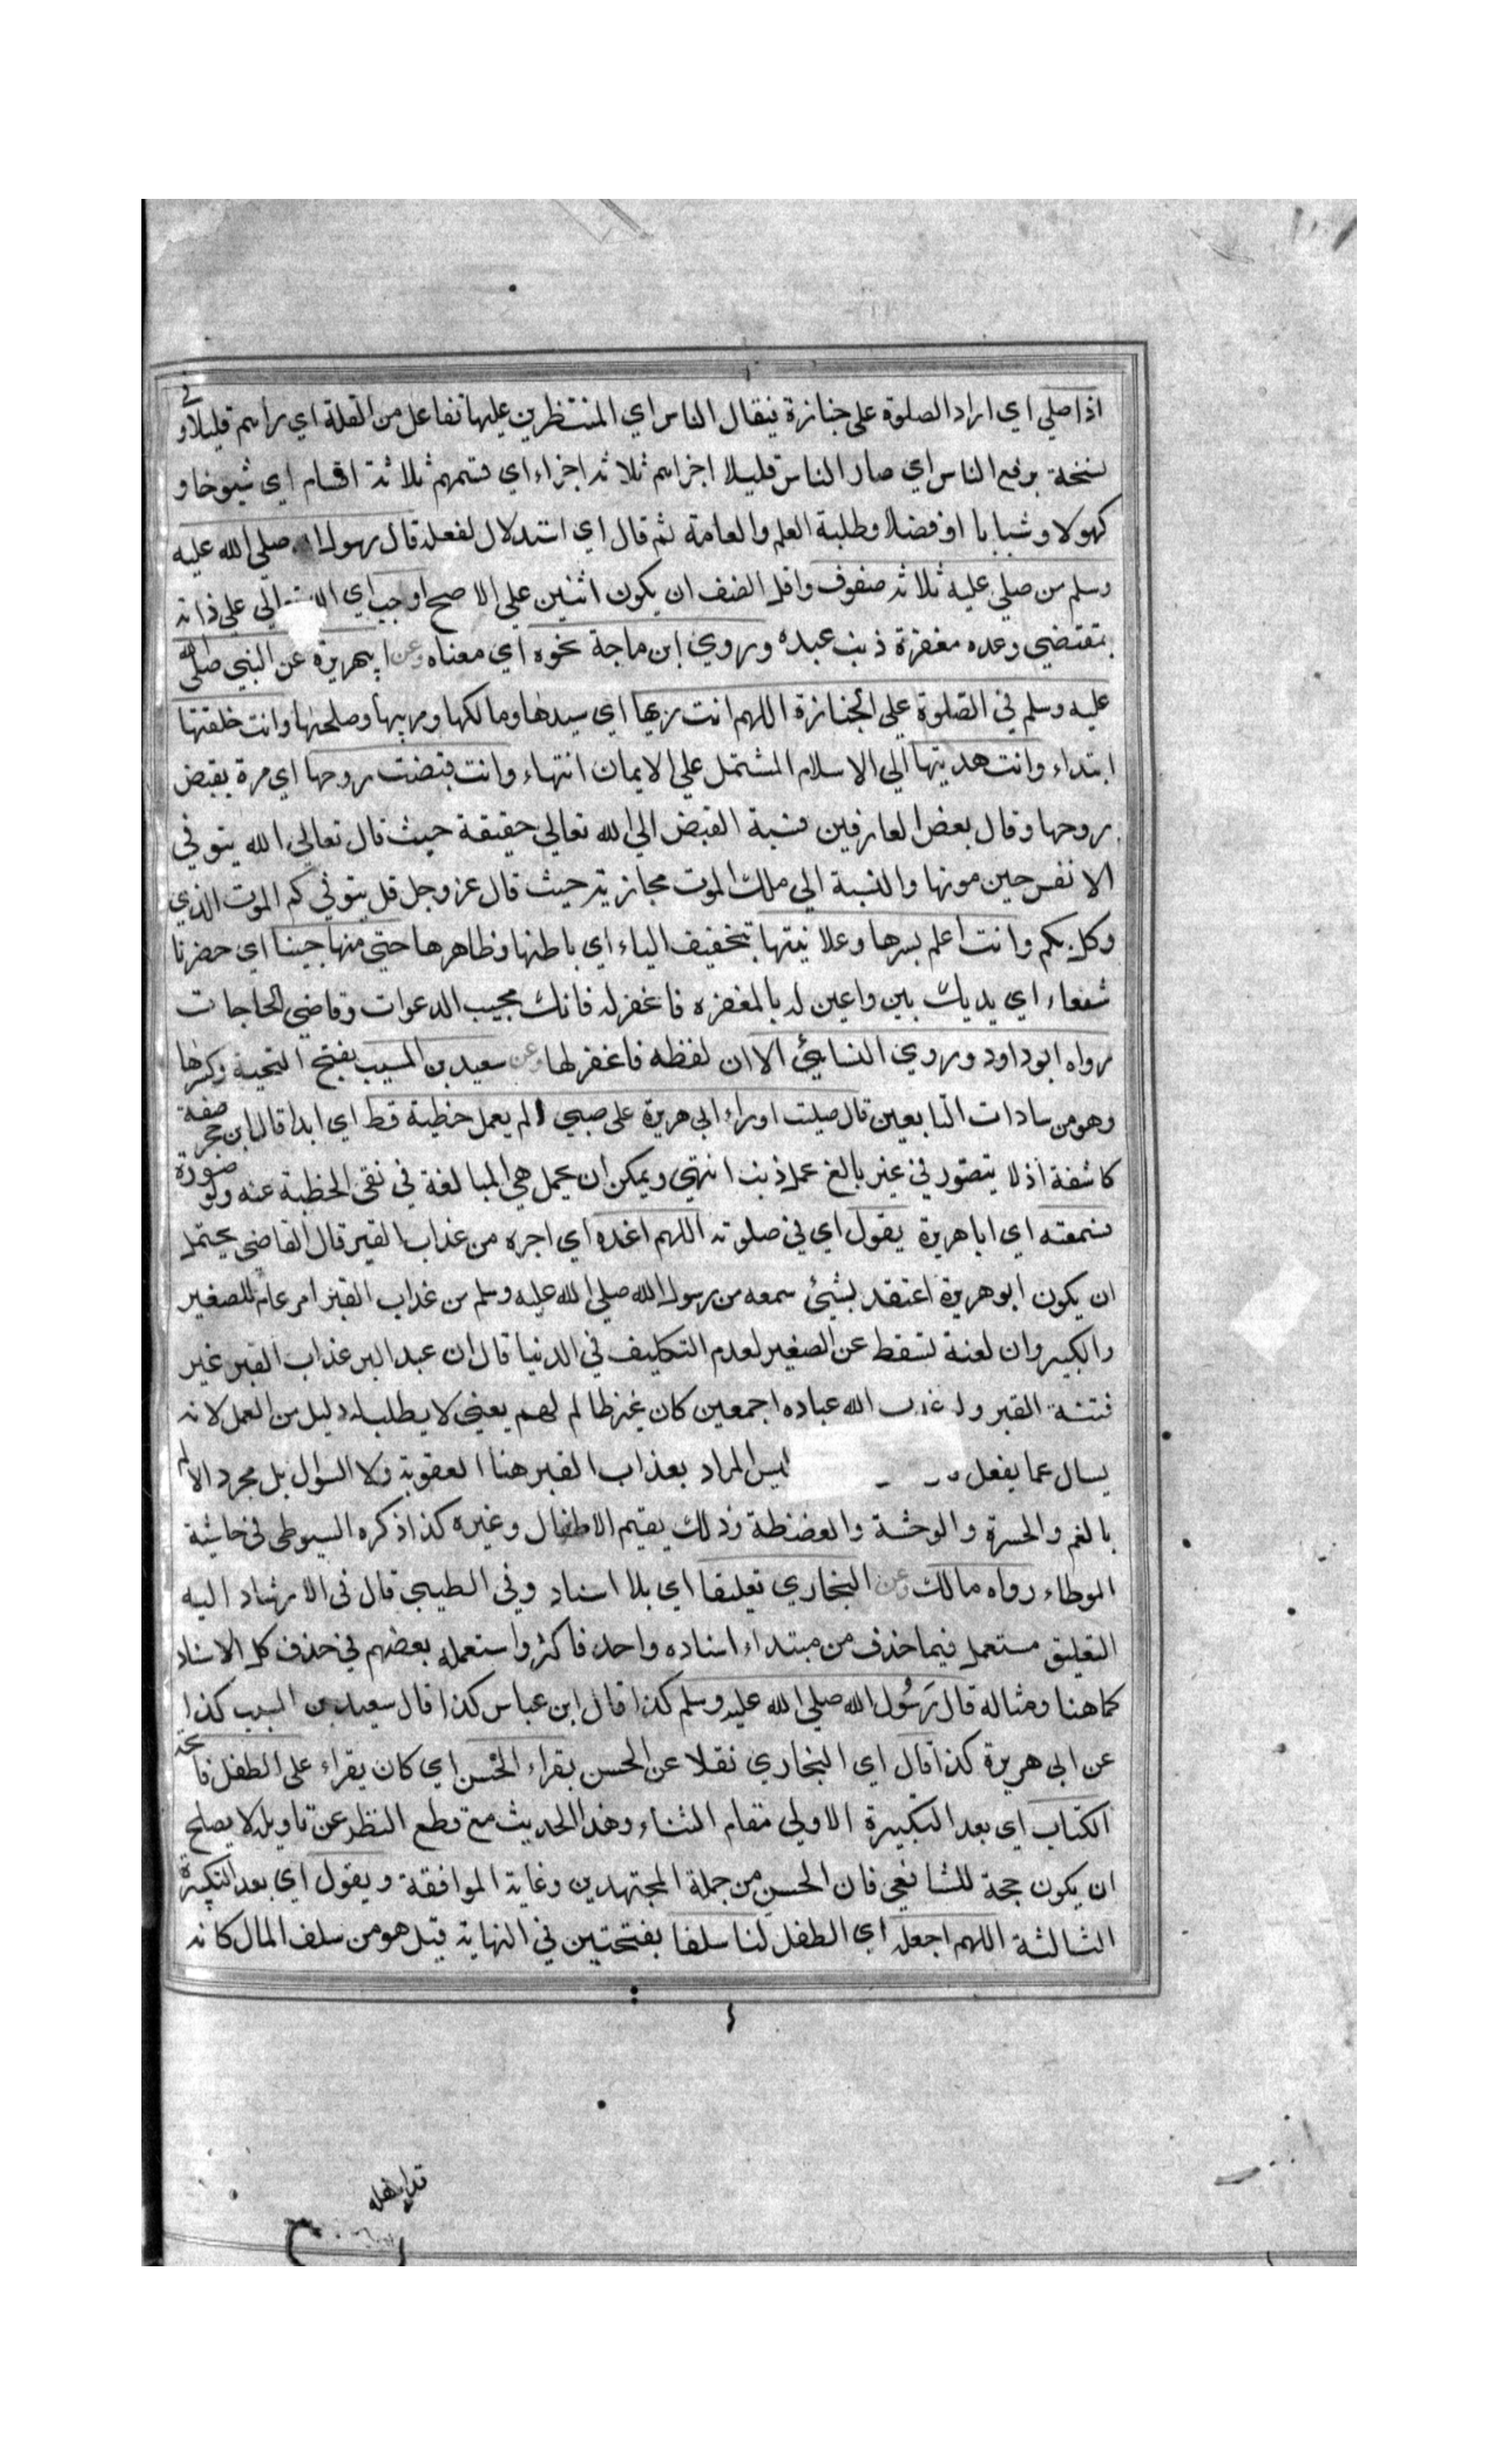 اذا صلي اي اراد الصلوة على جنازة فتقال الناس اي المنتظرين عليها تفاعل من القلة اي رأهم قليلا و في
نسخة برفع الناس اي صار الناس قليلا اجزاهم ثلاثة اجزاء اي قسمهم ثلاثة اقسام اي شيوخا و
كهولا وشبابا او فضلا وطلبة العلم والعامة ثم قال اي استدلال لفعله قال رسول الله صلي الله عليه
وسلم من صلي عليه ثلاثة صفوف واقل الصف ان يكون اثنين علي الاصح اوجب اي علي ذاته
بمقتضي وعده مغفرة ذنب عبده وروي ابن ماجة نحوه اي معناه وعن ابيهريرة عن النبي صلي الله
عليه وسلم في الصلوة علي الجنازة اللهم انت ربها اي سيدها ومالكها ومربيها ومصلحها وانت خلقتها
ابتداء وانت هديتها الي الاسلام المشتمل علي الايمان انتهاء وانت قبضت روحها اي مرة بقبض
روحها وقال بعض العارفين نسبة القبض الي الله تعالي حقيقة حيث قال تعالي الله يتوفي
الانفس حين موتها والنسبة الي ملك الموت مجازية حيث قال عز وجل قل يتوفي كم الموت الذي
وكل بكم وانت اعلم بسرها وعلانيتها بتخفيف الياء اي باطنها وظاهرها حتي منها جينا اي حضرنا
شفعاء اي يديك بين واعين له بالمغفره فاغفر له فانك مجيب الدعوات وقاضي الحاجات
رواه ابو داود وروي النسايئ الا ان لفظه فاغفر لها وعن سعيد بن المسيب بفتح التحية وكسرها
وهو من سادات التابعين قال صليت اوراء ابي هريرة على صبي لم يعمل خطية قط اي ابدا قال ابن حجر صفة
كاشفة اذ لا يتصور في غير بالغ عمل ذنب انتهي ويمكن ان يحمل هي المبالغة في نفي الخطية عنه ولو صورة
سمعته اي ابا هريرة يقول اي في صلوته اللهم اعذه اي اجره من عذاب القبر قال القاضي يحتمل
ان يكون ابو هريرة اعتقد بشيئ سمعه من رسول الله صلي الله عليه وسلم من عذاب القبر امر عام للصغير
والكبير وان لعنة تسقط عن الصغير لعدم التكليف في الدنيا قال ان عبد البر عذاب القبر غير
فتنة القبر ولو عذب الله عباده اجمعين كان غير ظالم لهم يعني لا يطلب له دليل من العمل لانه
يسال عما يفعل ليس المراد بعذاب القبر هنا العقوبة ولا السؤال بل مجرد الالم
بالغم والحسرة والوحشة والضغطة وذلك يقيم الاطفال وغيره كذا ذكره السيوطي في حاشية
الموطاء رواه مالك وعن البخاري تعليقا اي بلا اسناد وفي الطيبي قال في الارشاد اليه
التعليق مستعمل فيما حذف من مبتداء اسناده واحد فاكثر واستعمله بعضهم في حذف كل الاسناد
كما هنا ومثاله قال رسول الله صلي الله عليه وسلم كذا قال ابن عباس كذا قال سعيد بن المسيب كذا
عن ابي هريرة كذا قال اي البخاري نقلا عن الحسن يقراء الحسن اي كان يقراء على الطفل فاتحة
الكتاب اي بعد التكبيرة الاولي مقام الثناء وهذا الحديث مع قطع النظر عن تاويله لا يصلح
ان يكون حجة للشافعي فان الحسن من جملة المجتهدين وغاية الموافقة ويقول اي بعد التكبيرة
الثالثة اللهم اجعله اي الطفل لنا سلفا بفتحتين في النهاية قيل هو من سلف المال كانه